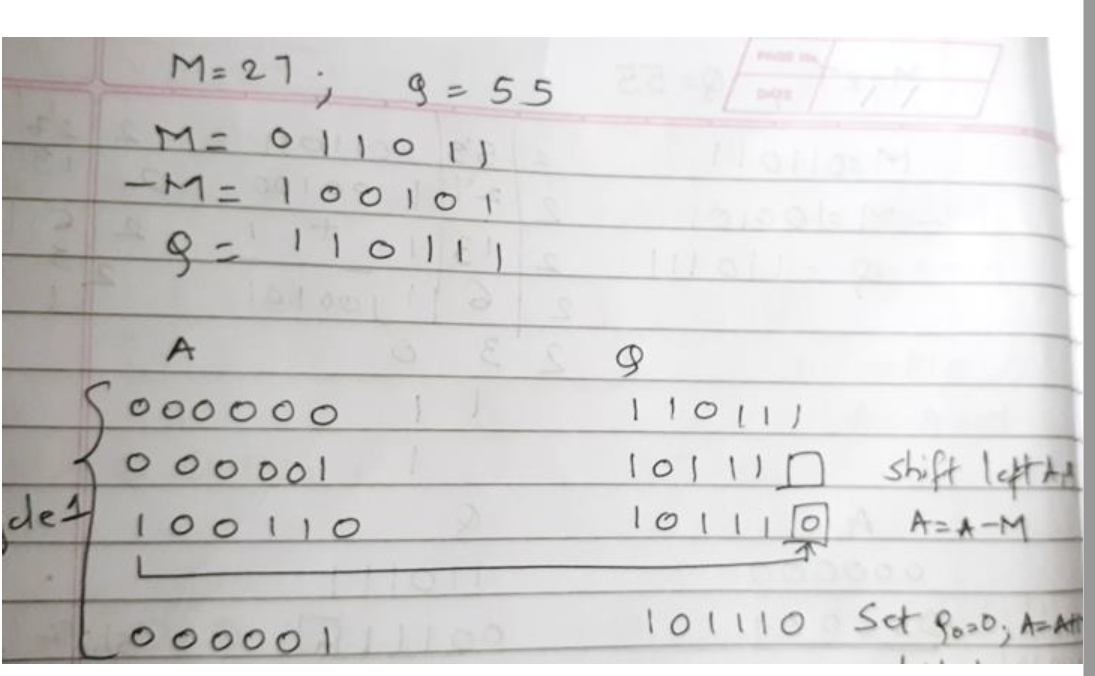 PAGE No.
DATE
M = 27 ; Q = 55
M = 011011
-M = 100101
Q = 110111
A Q
000000 110111
000001 10111□ shift left A
100110 10111 0 A = A - M
000001 101110 Set Q0=0; A=A+